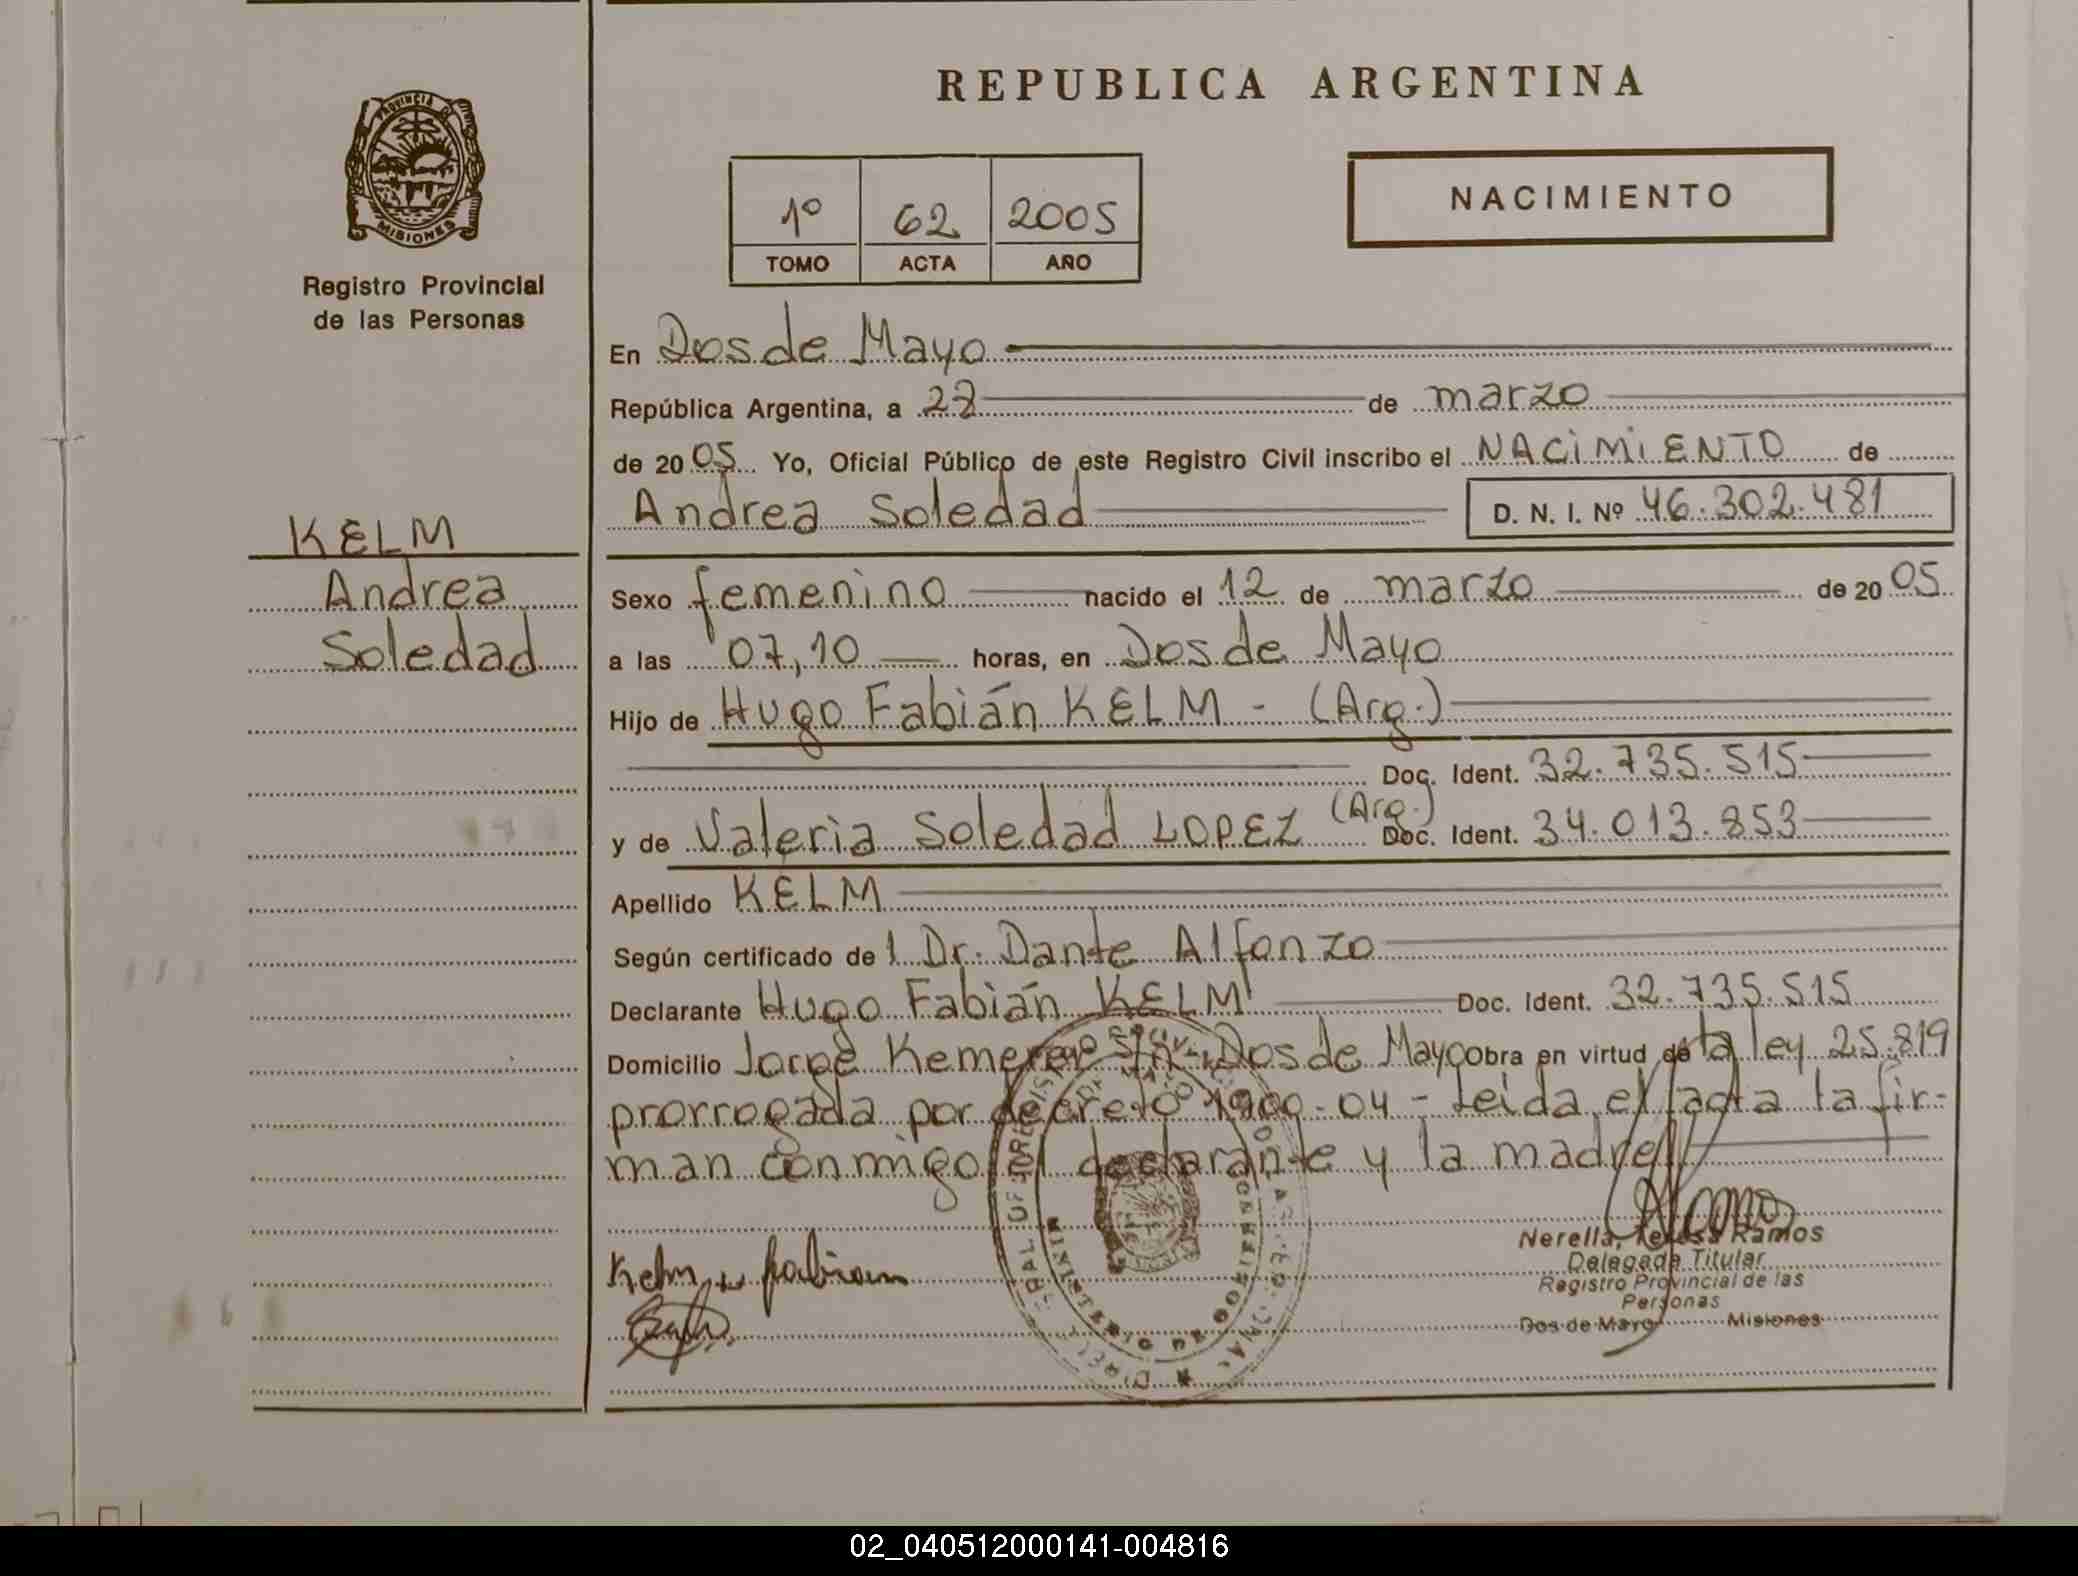 REPUBLICA ARGENTINA
PROVINCIA DE
MISIONES
Registro Provincial
de las Personas
1º 62 2005
TOMO ACTA AÑO
NACIMIENTO
En Dos de Mayo
República Argentina, a 28 de marzo
de 2005 Yo, Oficial Público de este Registro Civil inscribo el NACIMIENTO de
Andrea Soledad D. N. I. Nº 46.302.481
KELM
Andrea
Soledad
Sexo femenino nacido el 12 de marzo de 2005
a las 07,10 horas, en Dos de Mayo
Hijo de Hugo Fabián KELM - (Arg.)
Doc. Ident. 32.735.515
y de Valeria Soledad LOPEZ (Arg.) Doc. Ident. 34.013.853
Apellido KELM
Según certificado de l Dr. Dante Alfonzo
Declarante Hugo Fabián KELM Doc. Ident. 32.735.515
Domicilio Jorge Kemerer S/n - Dos de Mayo obra en virtud de la ley 25.819
prorrogada por decreto 1900-04 - Leida el acta la fir-
man conmigo el declarante y la madre
Kelm H fabian
Nerella, Teresa Ramos
Delegada Titular
Registro Provincial de las
Personas
Dos de Mayo Misiones
MINISTERIO DE GOBIERNO
02_040512000141-004816